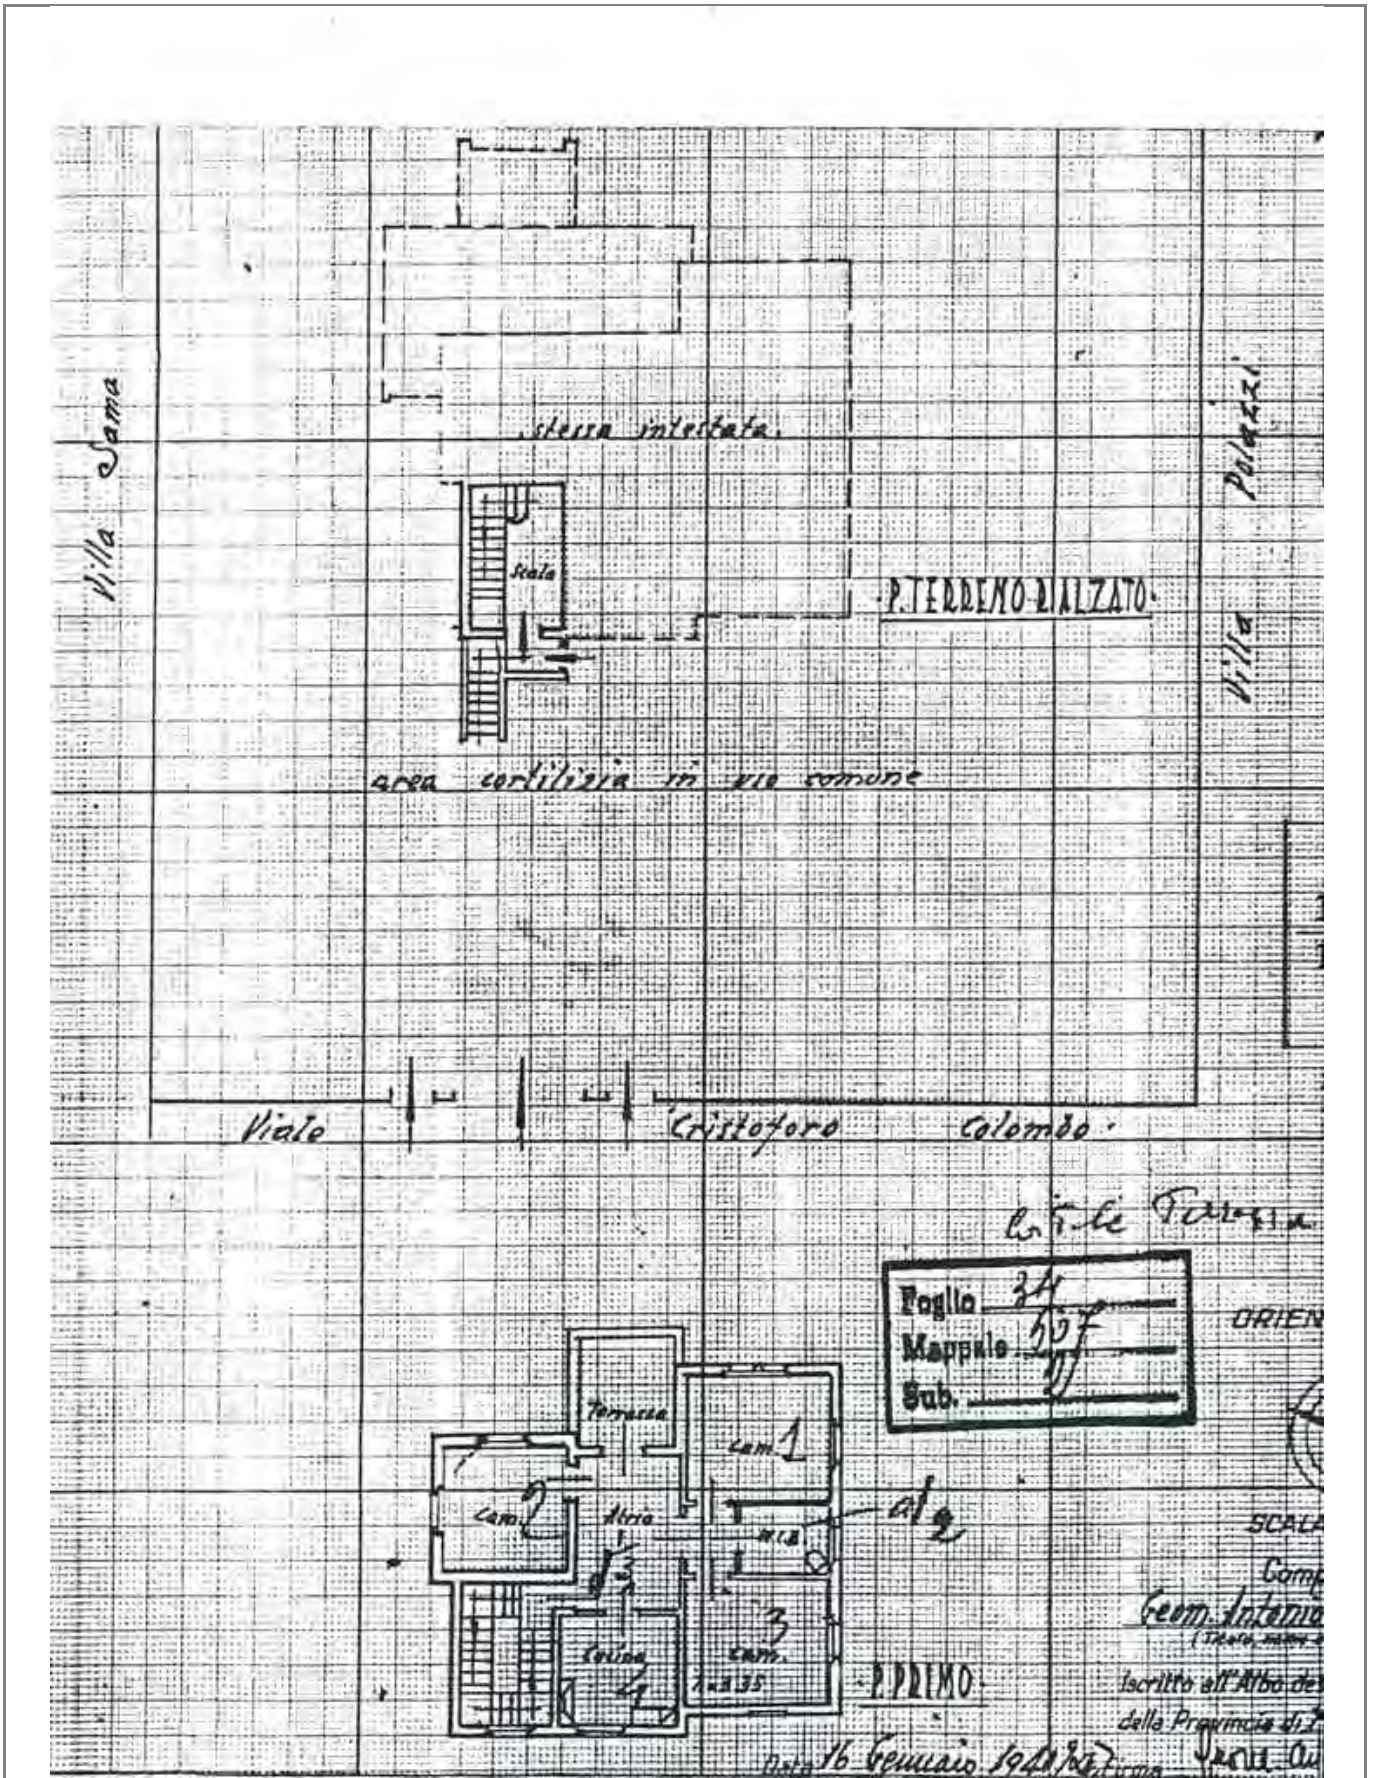 Villa Sama
stessa intestata.
Villa Polazzi
scala
P. TERRENO RIALZATO
area cortilizia in uso comune
Viale Cristoforo Colombo
Foglio 34
Mappale 507
Sub.
ORIEN
Terrazza
Cam. 1
Cam. 2
Atrio
W.C.B.
a/2
SCALA
Comp
Geom. Antonio
Cucina 4
3
Cam.
3.35
P. PRIMO
Iscritto all'Albo de
della Provincia di
Data 16 Gennaio Firma